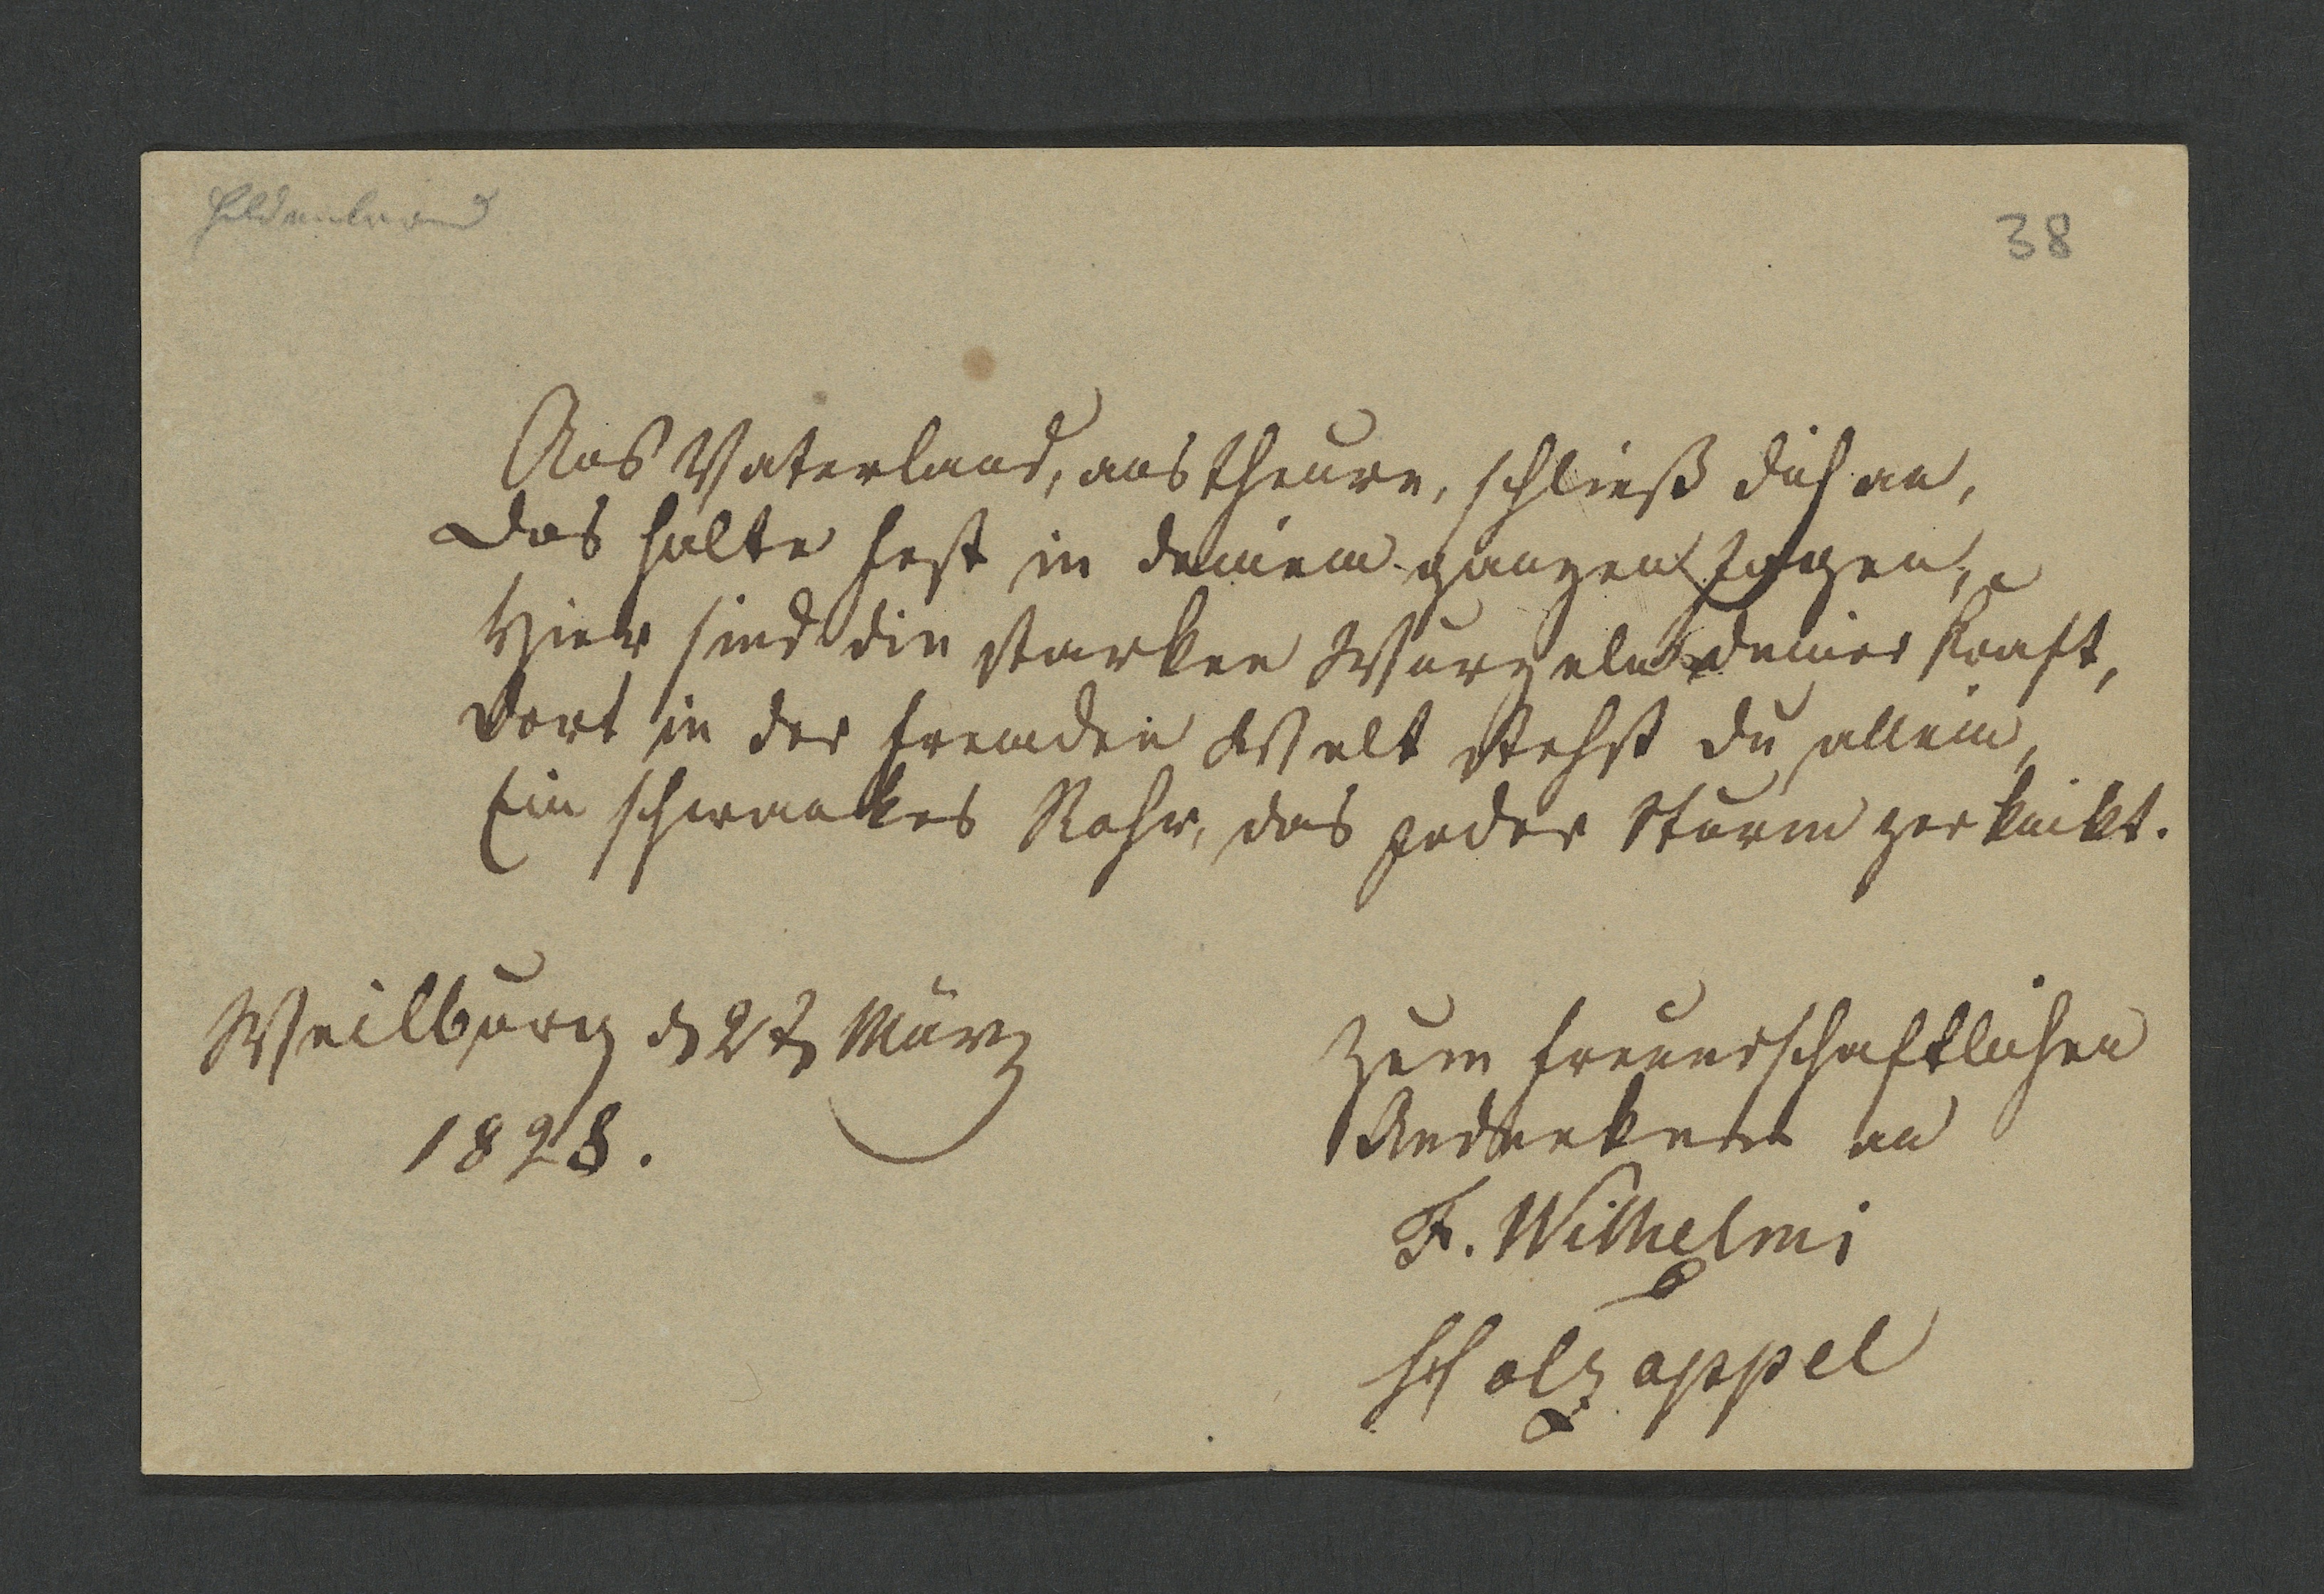 Hildenbrand
38
Ans Vaterland, ans theure, schließ dich an,
Das halte fest in deinem ganzen Herzen,
Hier sind die starken Wurzeln deiner Kraft,
Dort in der fremden Welt stehst du allein,
Ein schwankes Rohr, das jeder Sturm zerknikt.
Weilburg d 2t März
1828.
Zum freundschaftlichen
Andenken an
F. Wilhelmi
Holzappel